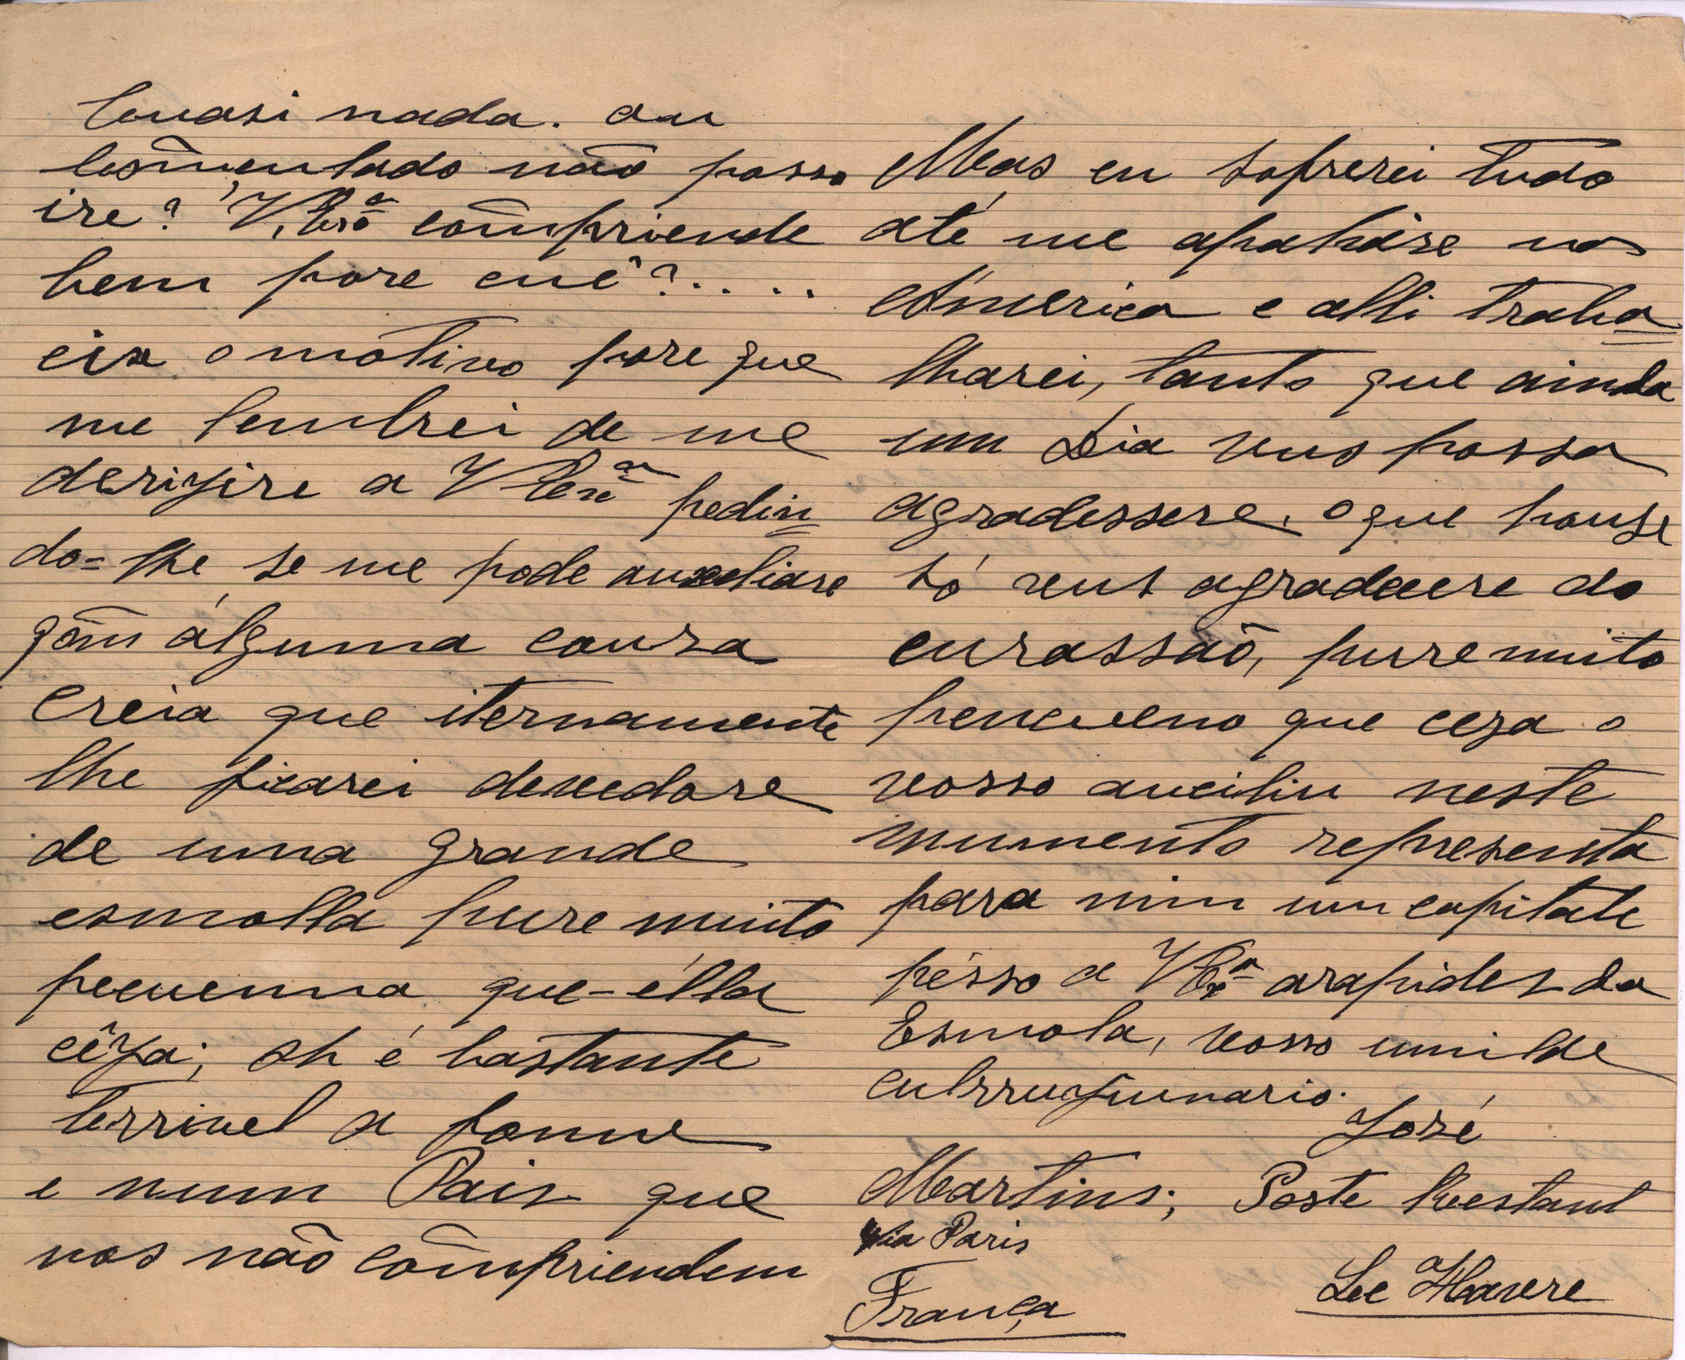 Cuasi nada. au
cosũlado não posso
ire? V. Exª cõmpriende
bem pore cuê?.....
eis o motivo pore que
me lembrei de me
derigire a V Exª pedin
do=lhe se me pode auxeliare
qõm álguma couza
Creia que iternamente
lhe ficarei devedore
de uma grande
esmolla pure muito
pecuenna que-élla
cêja; oh é bastante
terrivel a fomme
e num Pais que
nos não cõmpriendem
Mas eu sofrerei tudo
até me apaháre na
América e alli traba
lharei, tanto que ainda
um Dia vus possa
agradessere, o que houje
só vus agradecere do
curassão, pure muito
pencueno que ceza o
vosso auciliu neste
mumento representa
para mim um capitale
pésso a V Exª arapides da
Esmola, vosso umilde
culrrugiunario.
José
Martins; Poste Restant
via Paris
Le Havere
França